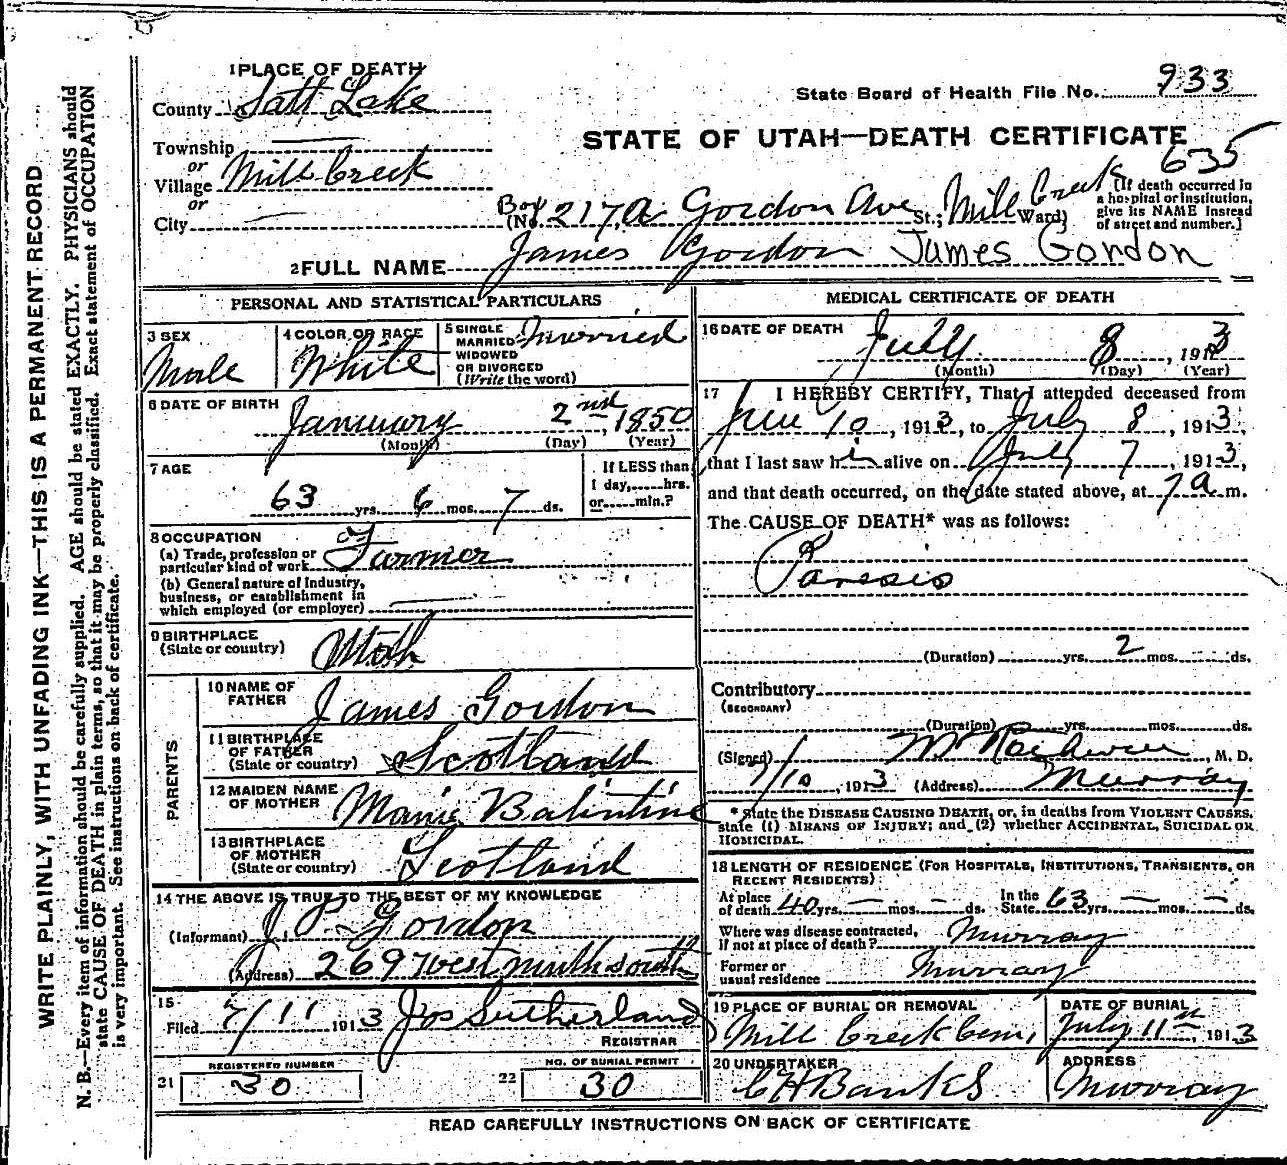 WRITE PLAINLY, WITH UNFADING INK—THIS IS A PERMANENT RECORD
N. B.—Every item of information should be carefully supplied. AGE should be stated EXACTLY. PHYSICIANS should
state CAUSE OF DEATH in plain terms, so that it may be properly classified. Exact statement of OCCUPATION
is very important. See instructions on back of certificate.
1 PLACE OF DEATH
County Salt Lake
Township
or
Village Mill Creek
or
City
State Board of Health File No. 933
STATE OF UTAH—DEATH CERTIFICATE
635
Box
(No. 217, A Gordon Ave St.; Mill Creek Ward)
[If death occurred in
a hospital or institution,
give its NAME instead
of street and number.]
2 FULL NAME James Gordon James Gordon
PERSONAL AND STATISTICAL PARTICULARS
3 SEX
Male
4 COLOR OR RACE
White
5 SINGLE
MARRIED
WIDOWED
OR DIVORCED
(Write the word)
Married
6 DATE OF BIRTH
January 2nd, 1850
(Month) (Day) (Year)
7 AGE
63 yrs. 6 mos. 7 ds.
If LESS than
1 day,.....hrs.
or.....min.?
8 OCCUPATION
(a) Trade, profession or
particular kind of work Farmer
(b) General nature of Industry,
business, or establishment in
which employed (or employer)
9 BIRTHPLACE
(State or country) Utah
PARENTS
10 NAME OF
FATHER James Gordon
11 BIRTHPLACE
OF FATHER
(State or country) Scotland
12 MAIDEN NAME
OF MOTHER Balintine
13 BIRTHPLACE
OF MOTHER
(State or country) Scotland
14 THE ABOVE IS TRUE TO THE BEST OF MY KNOWLEDGE
(Informant) J. P. Gordon
(Address) 269 West ninth south
15
Filed 7/11 1913 Jos Sutherland
REGISTRAR
REGISTERED NUMBER
21 30
NO. OF BURIAL PERMIT
22 30
MEDICAL CERTIFICATE OF DEATH
16 DATE OF DEATH
July 8, 1913
(Month) (Day) (Year)
17 I HEREBY CERTIFY, That I attended deceased from
June 10, 1913, to July 8, 1913,
that I last saw him alive on July 7, 1913,
and that death occurred, on the date stated above, at 7 a m.
The CAUSE OF DEATH* was as follows:
Paresis
(Duration) yrs. 2 mos. ds.
Contributory
(SECONDARY)
(Duration) yrs. mos. ds.
(Signed) M. D.
7/10, 1913 (Address) Murray
* State the DISEASE CAUSING DEATH, or, in deaths from VIOLENT CAUSES,
state (1) MEANS OF INJURY; and (2) whether ACCIDENTAL, SUICIDAL OR
HOMICIDAL.
18 LENGTH OF RESIDENCE (FOR HOSPITALS, INSTITUTIONS, TRANSIENTS, OR
RECENT RESIDENTS)
At place
of death 40 yrs. — mos. — ds. In the
State 63 yrs. — mos. — ds.
Where was disease contracted,
if not at place of death? Murray
Former or
usual residence Murray
19 PLACE OF BURIAL OR REMOVAL
Mill Creek Cem,
DATE OF BURIAL
July 11th, 1913
20 UNDERTAKER
C H Banks
ADDRESS
Murray
READ CAREFULLY INSTRUCTIONS ON BACK OF CERTIFICATE